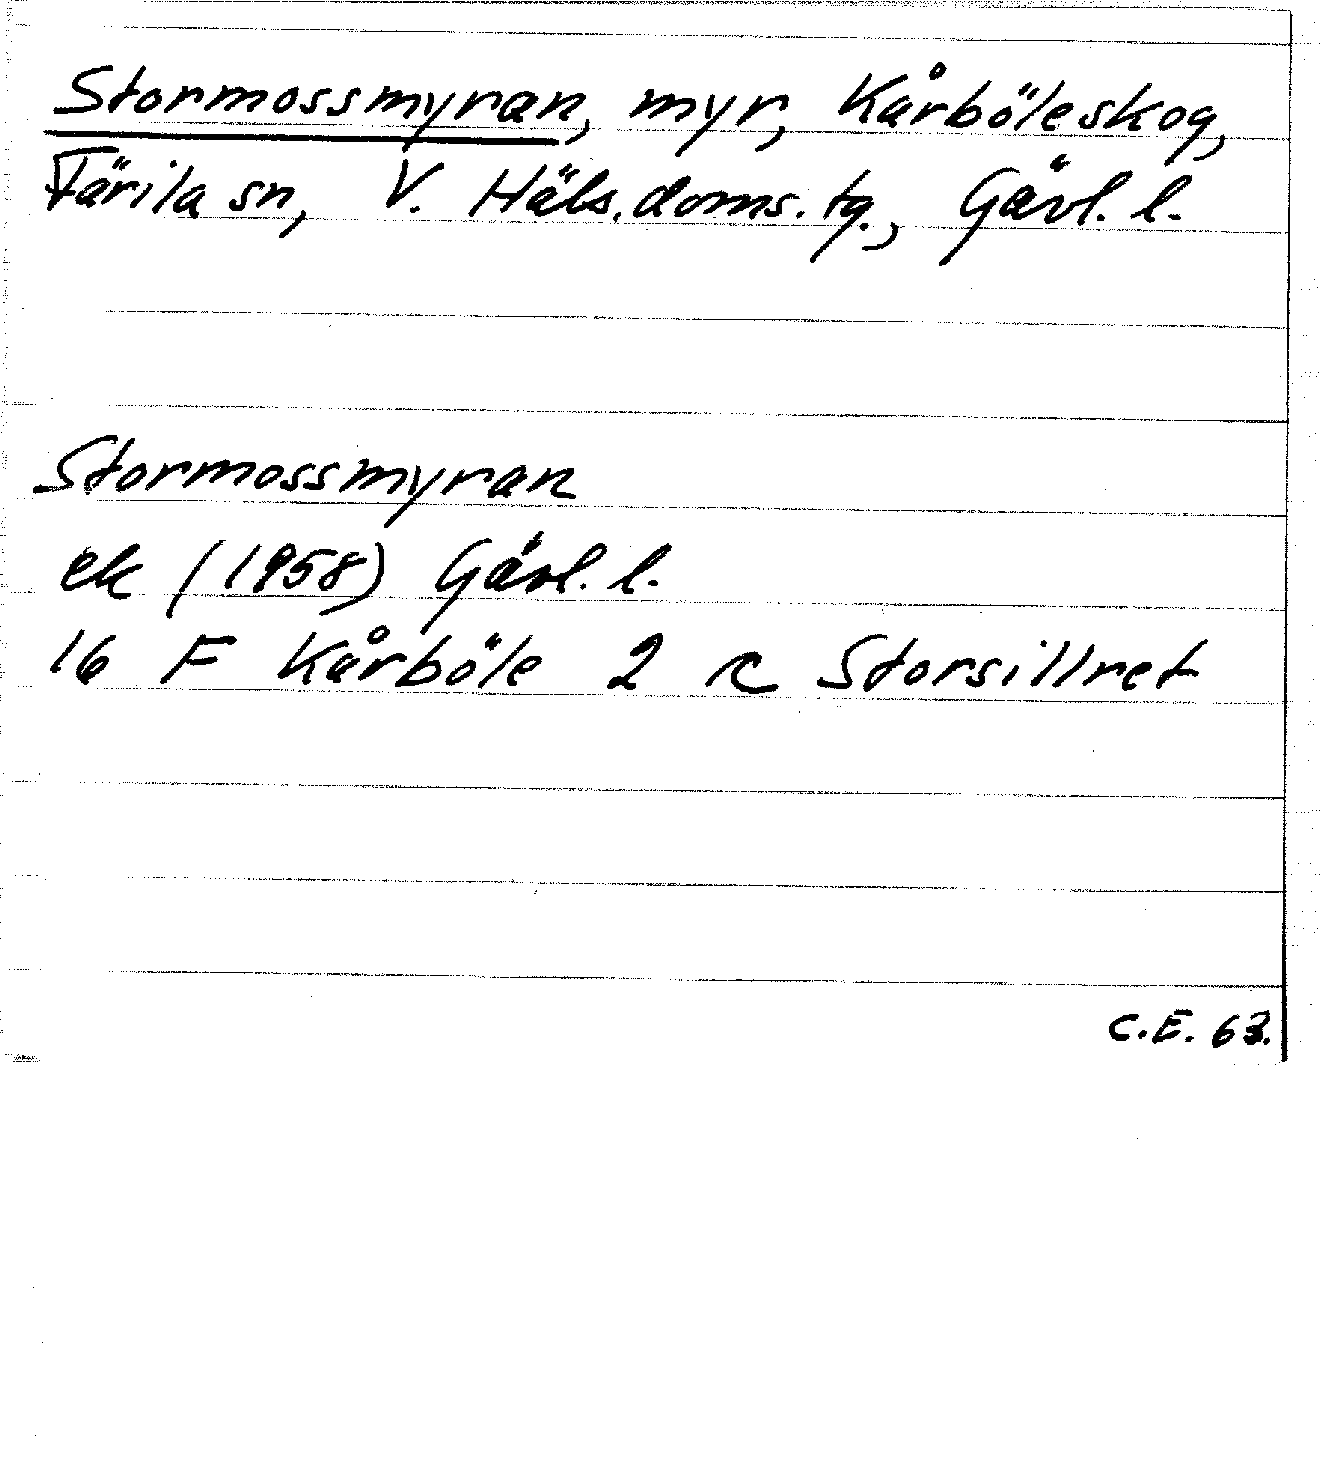 Stormossmyran, myr, Kårböleskog,
Färila sn, V. Häls. doms. tg., Gävl. l.
Stormossmyran
ek (1958) Gävl. l.
16 F Kårböle 2 c Storsillret
C.E. 63.